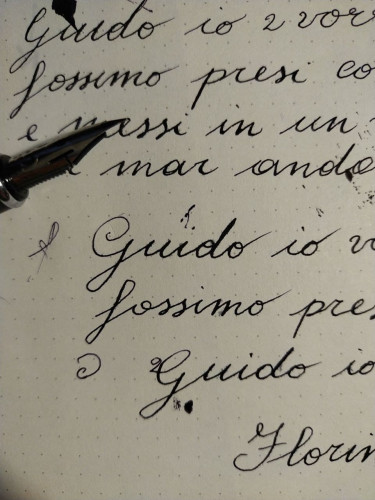 Guido io vor
fossimo presi co
e messi in un
mar ando
Guido io v
fossimo pres
Guido io
Florin